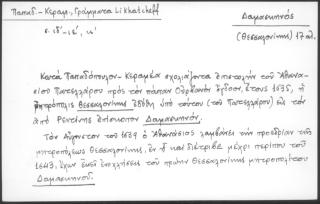 Παπαδ.-Κεραμ., Γράμματα Likhatcheff
σ. ιδ'-ιε', κ'
Δαμασκηνός
(Θεσσαλονίκης) 17 αἰ.
Κατὰ Παπαδόπουλον-Κεραμέα σχολιάζοντα ἐπιστολὴν τοῦ Ἀθανα-
σίου Πατελλάρου πρὸς τὸν πάπαν Οὐρβανὸν ὄγδοον, ἔτους 1635, ἡ
μητρόπολις Θεσσαλονίκης ἐδόθη ὑπὸ τούτου (τοῦ Πατελλάρου) εἰς τὸν
ἀπὸ Ρεντίνης ἐπίσκοπον Δαμασκηνόν.
Τὸν Αὔγουστον τοῦ 1639 ὁ Ἀθανάσιος λαμβάνει τὴν προεδρίαν τῆς
μητροπόλεως Θεσσαλονίκης, ἐν ᾗ καὶ διέτριβε μέχρι περίπου τοῦ
1643, ἔχων ἐκεῖ ἐνοχλήσεις τοῦ πρώην Θεσσαλονίκης μητροπολίτου
Δαμασκηνοῦ.